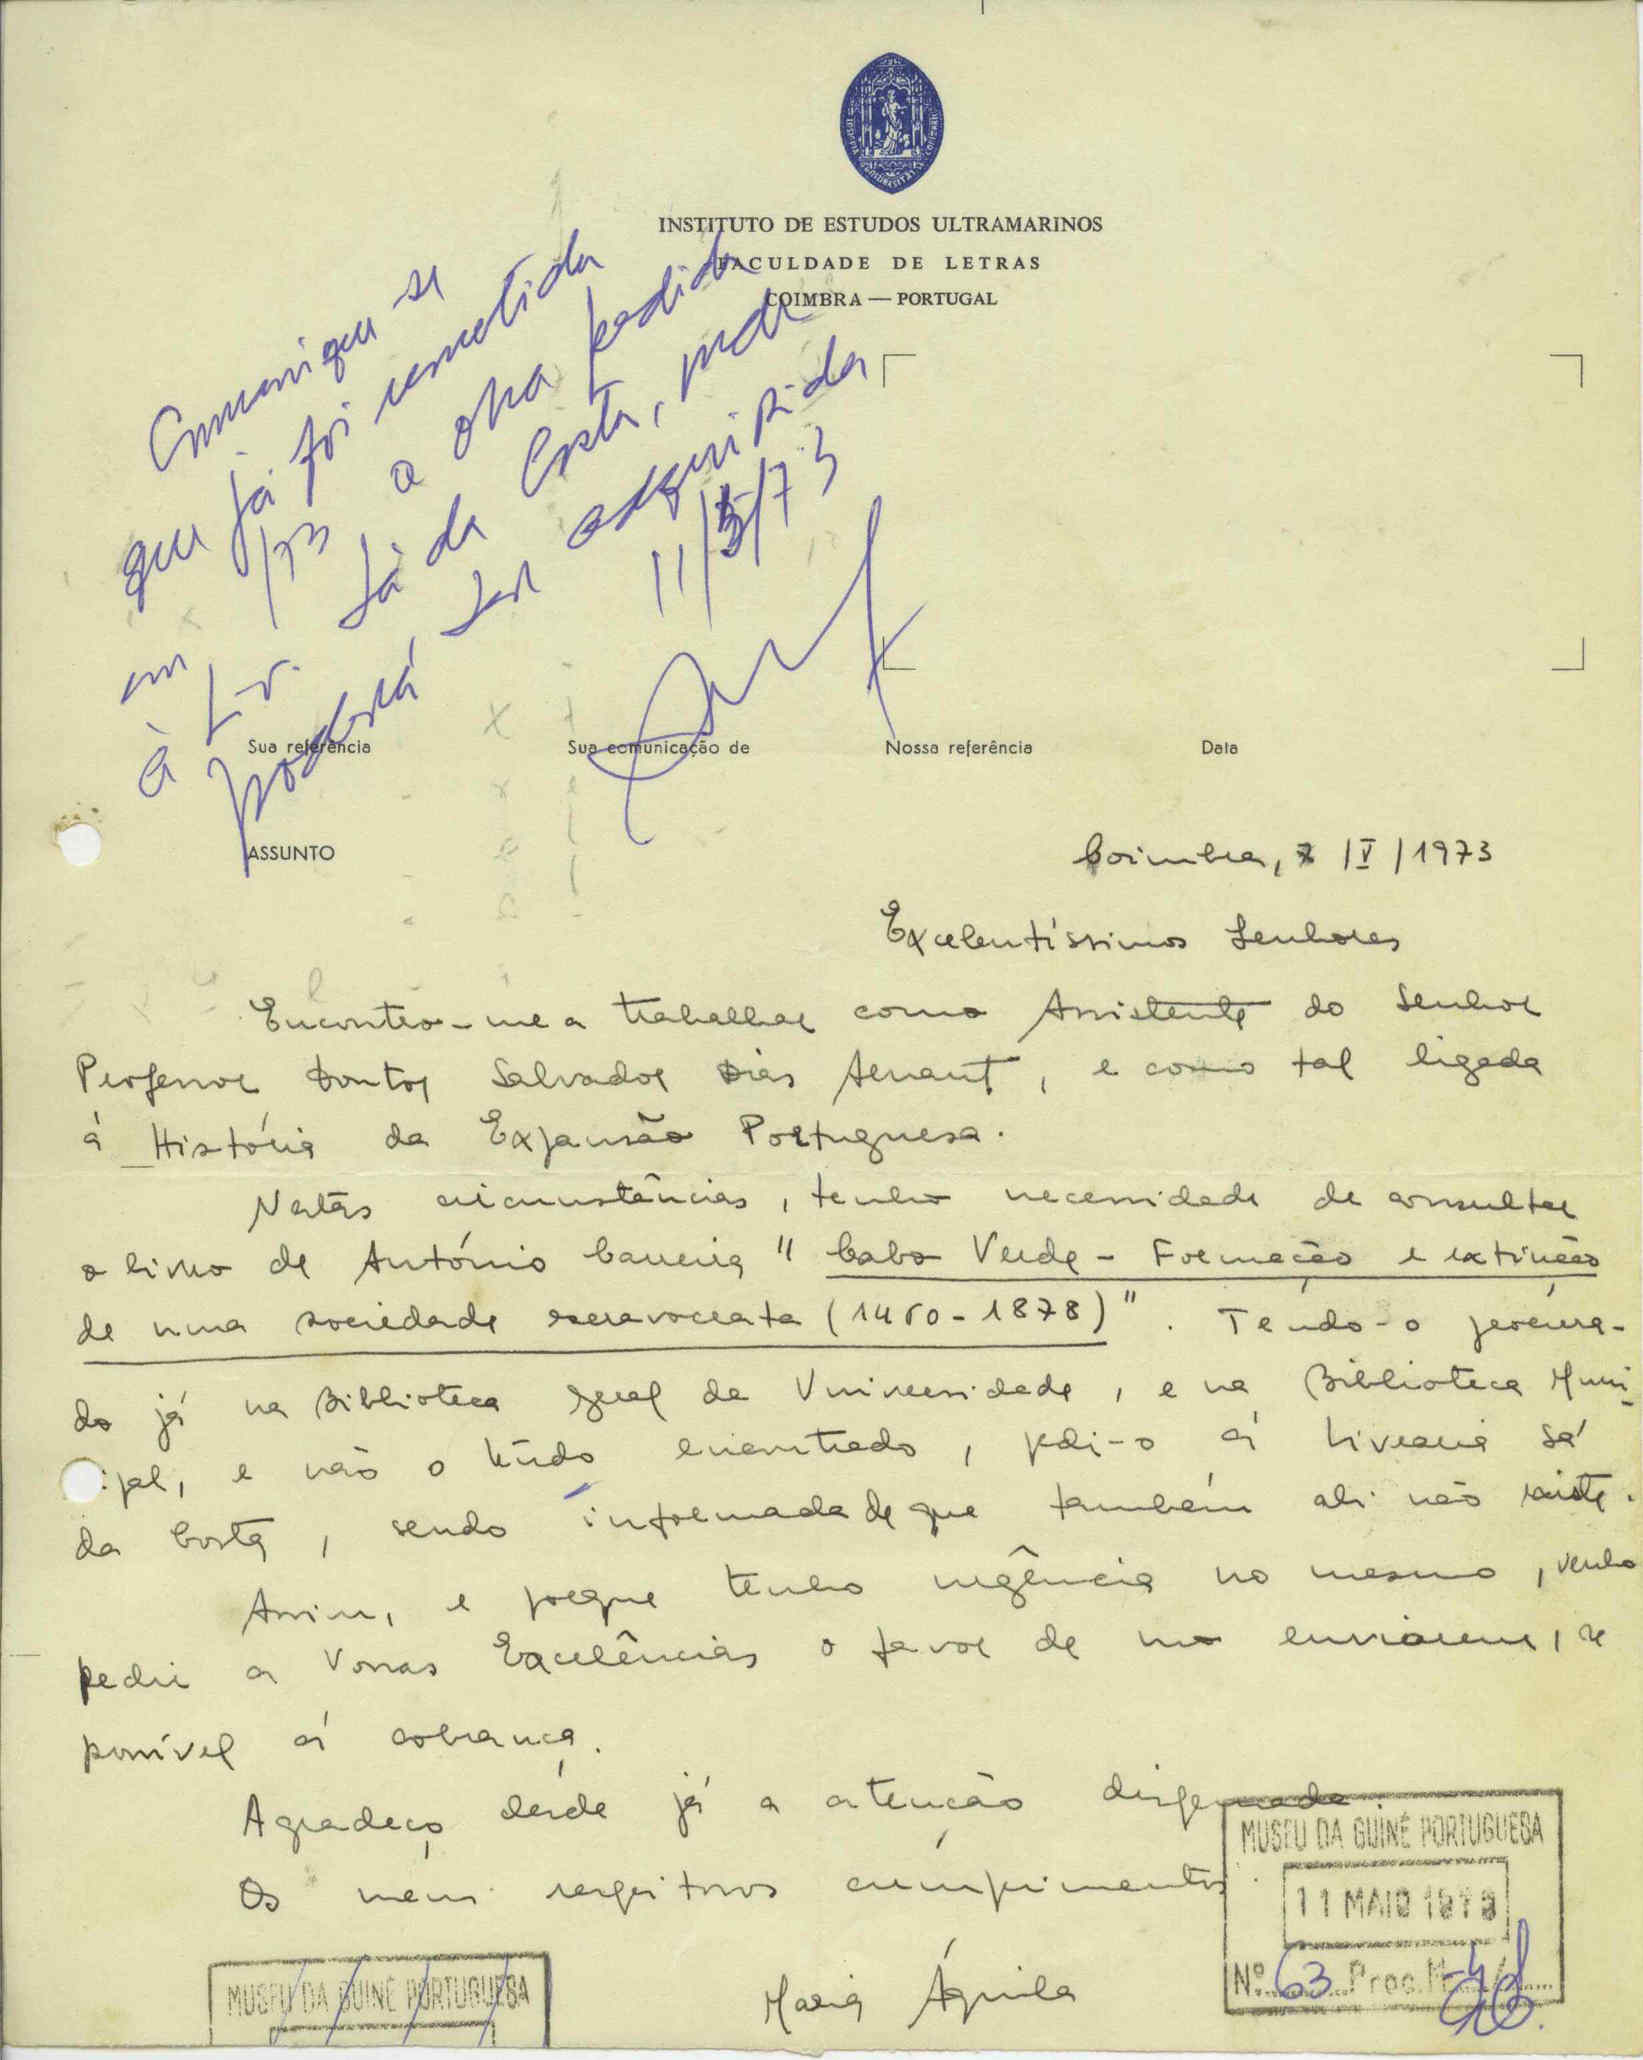 INSTITUTO DE ESTUDOS ULTRAMARINOS
FACULDADE DE LETRAS
COIMBRA — PORTUGAL
Comunique se
que já foi remetida
em /73 a obra pedida
à Lv. Sá da Costa, onde
poderá ser adquirida
11/5/73
Sua referência Sua comunicação de Nossa referência Data
ASSUNTO
Coimbra, 7 /V/1973
Excelentíssimos Senhores
Encontro-me a trabalhar como Assistente do Senhor
Professor Doutor Salvador Dias Arnaut, e como tal ligada
á História da Expansão Portuguesa.
Nestas circunstâncias, tenho necessidade de consultar
o livro de António Carreira " Cabo Verde - Formação e extinção
de uma sociedade escravocrata (1460-1878)". Tendo-o procura-
do já na Biblioteca geral da Universidade, e na Biblioteca Muni-
ipal, e não o tendo encontrado, pedi-o á Livraria Sá
da Costa, sendo informada de que também ali não existe.
Assim, e porque tenho urgência no mesmo, venho
pedir a Vossas Excelências o favor de mo enviarem, se
possível á cobrança.
Agradeço desde já a atenção dispensada.
Os meus respeitosos cumprimentos.
Maria Águila
MUSEU DA GUINÉ PORTUGUESA
11 MAIO 1973
Nº 63 Proc. M-4/
MUSEU DA GUINÉ PORTUGUESA